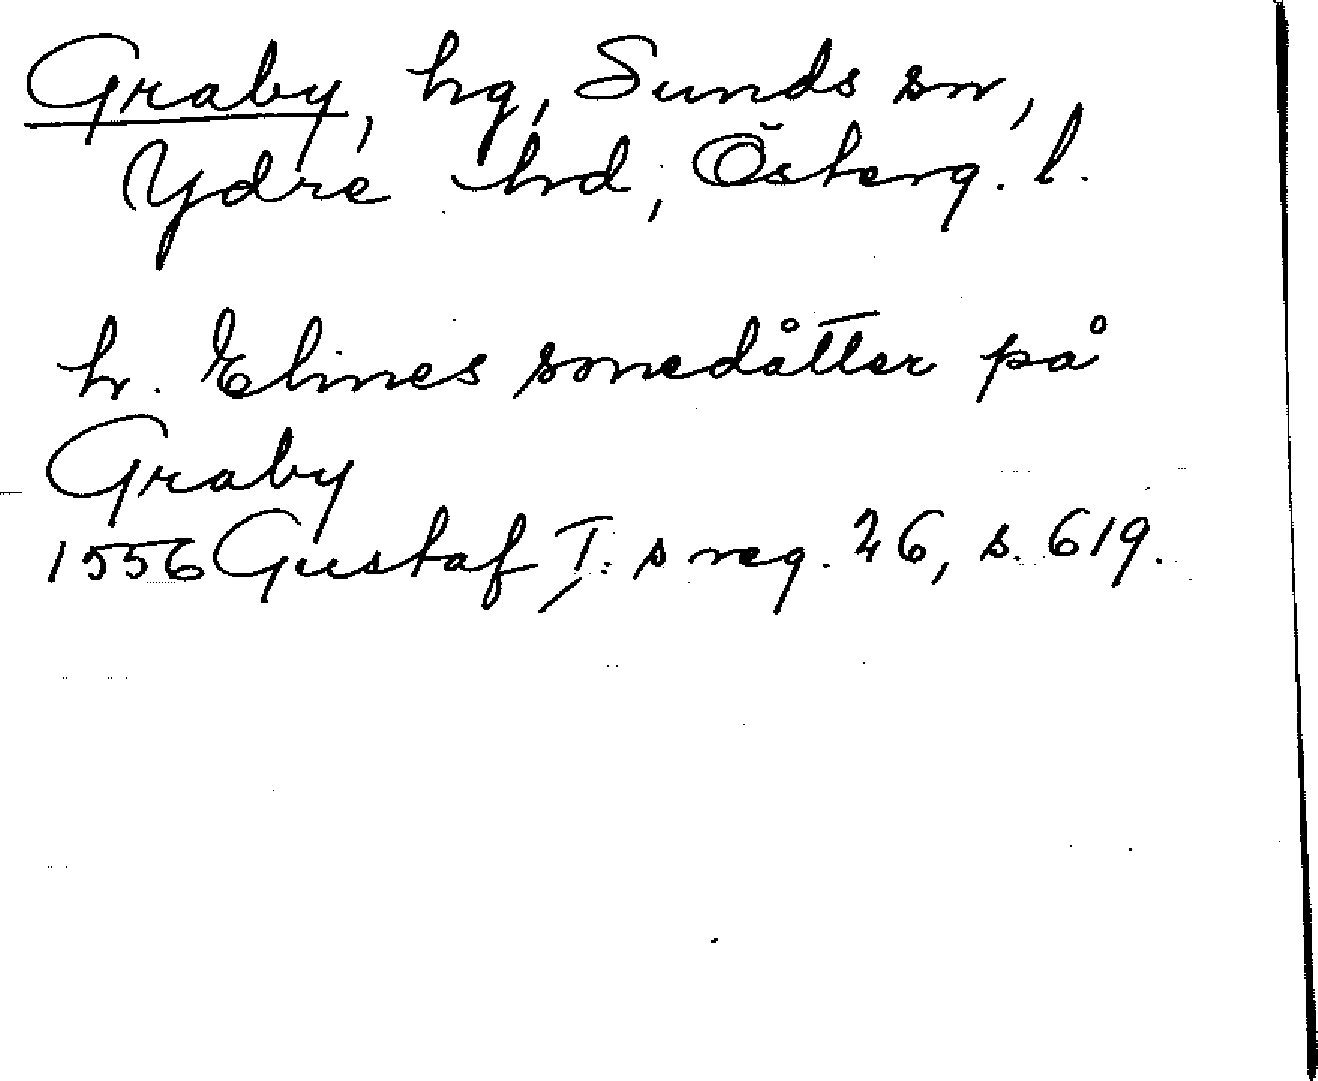 Graby, hg, Sunds sn,
Ydre hrd, Österg. l.
h. Elines sonedåtter på
Graby
1556 Gustaf I:s reg. 26, s. 619.